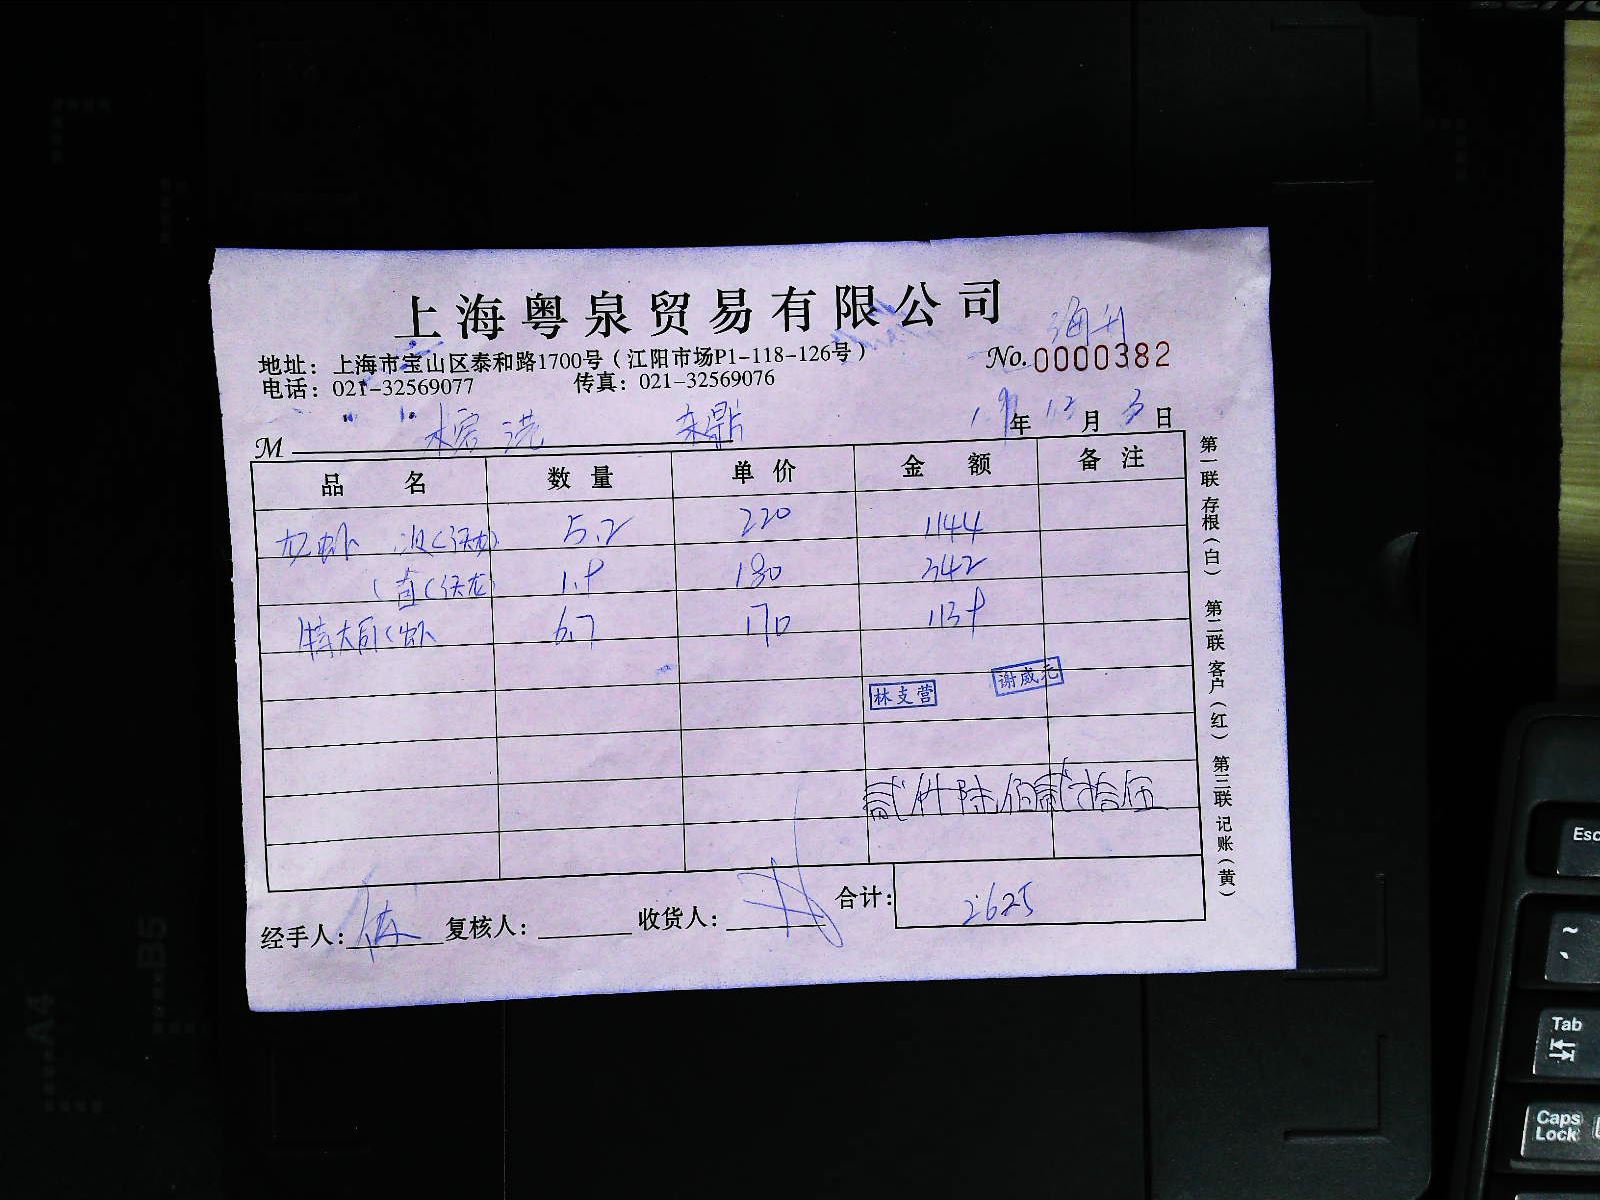 上海粤泉贸易有限公司
地址：上海市宝山区泰和路1700号（江阳市场P1-118-126号）
No.0000382
电话：021-32569077 传真：021-32569076
M
年 12月 3日
品名 数量 单价 金额 备注
5.2 220 1144
1.9 180 342
6.7 170 1139
林支营 谢威元
贰仟陆佰贰拾伍
合计： 2625
经手人： 复核人： 收货人：
第一联 存根（白） 第二联 客户（红） 第三联 记账（黄）
A4
B5
Esc
~
Tab
Caps Lock